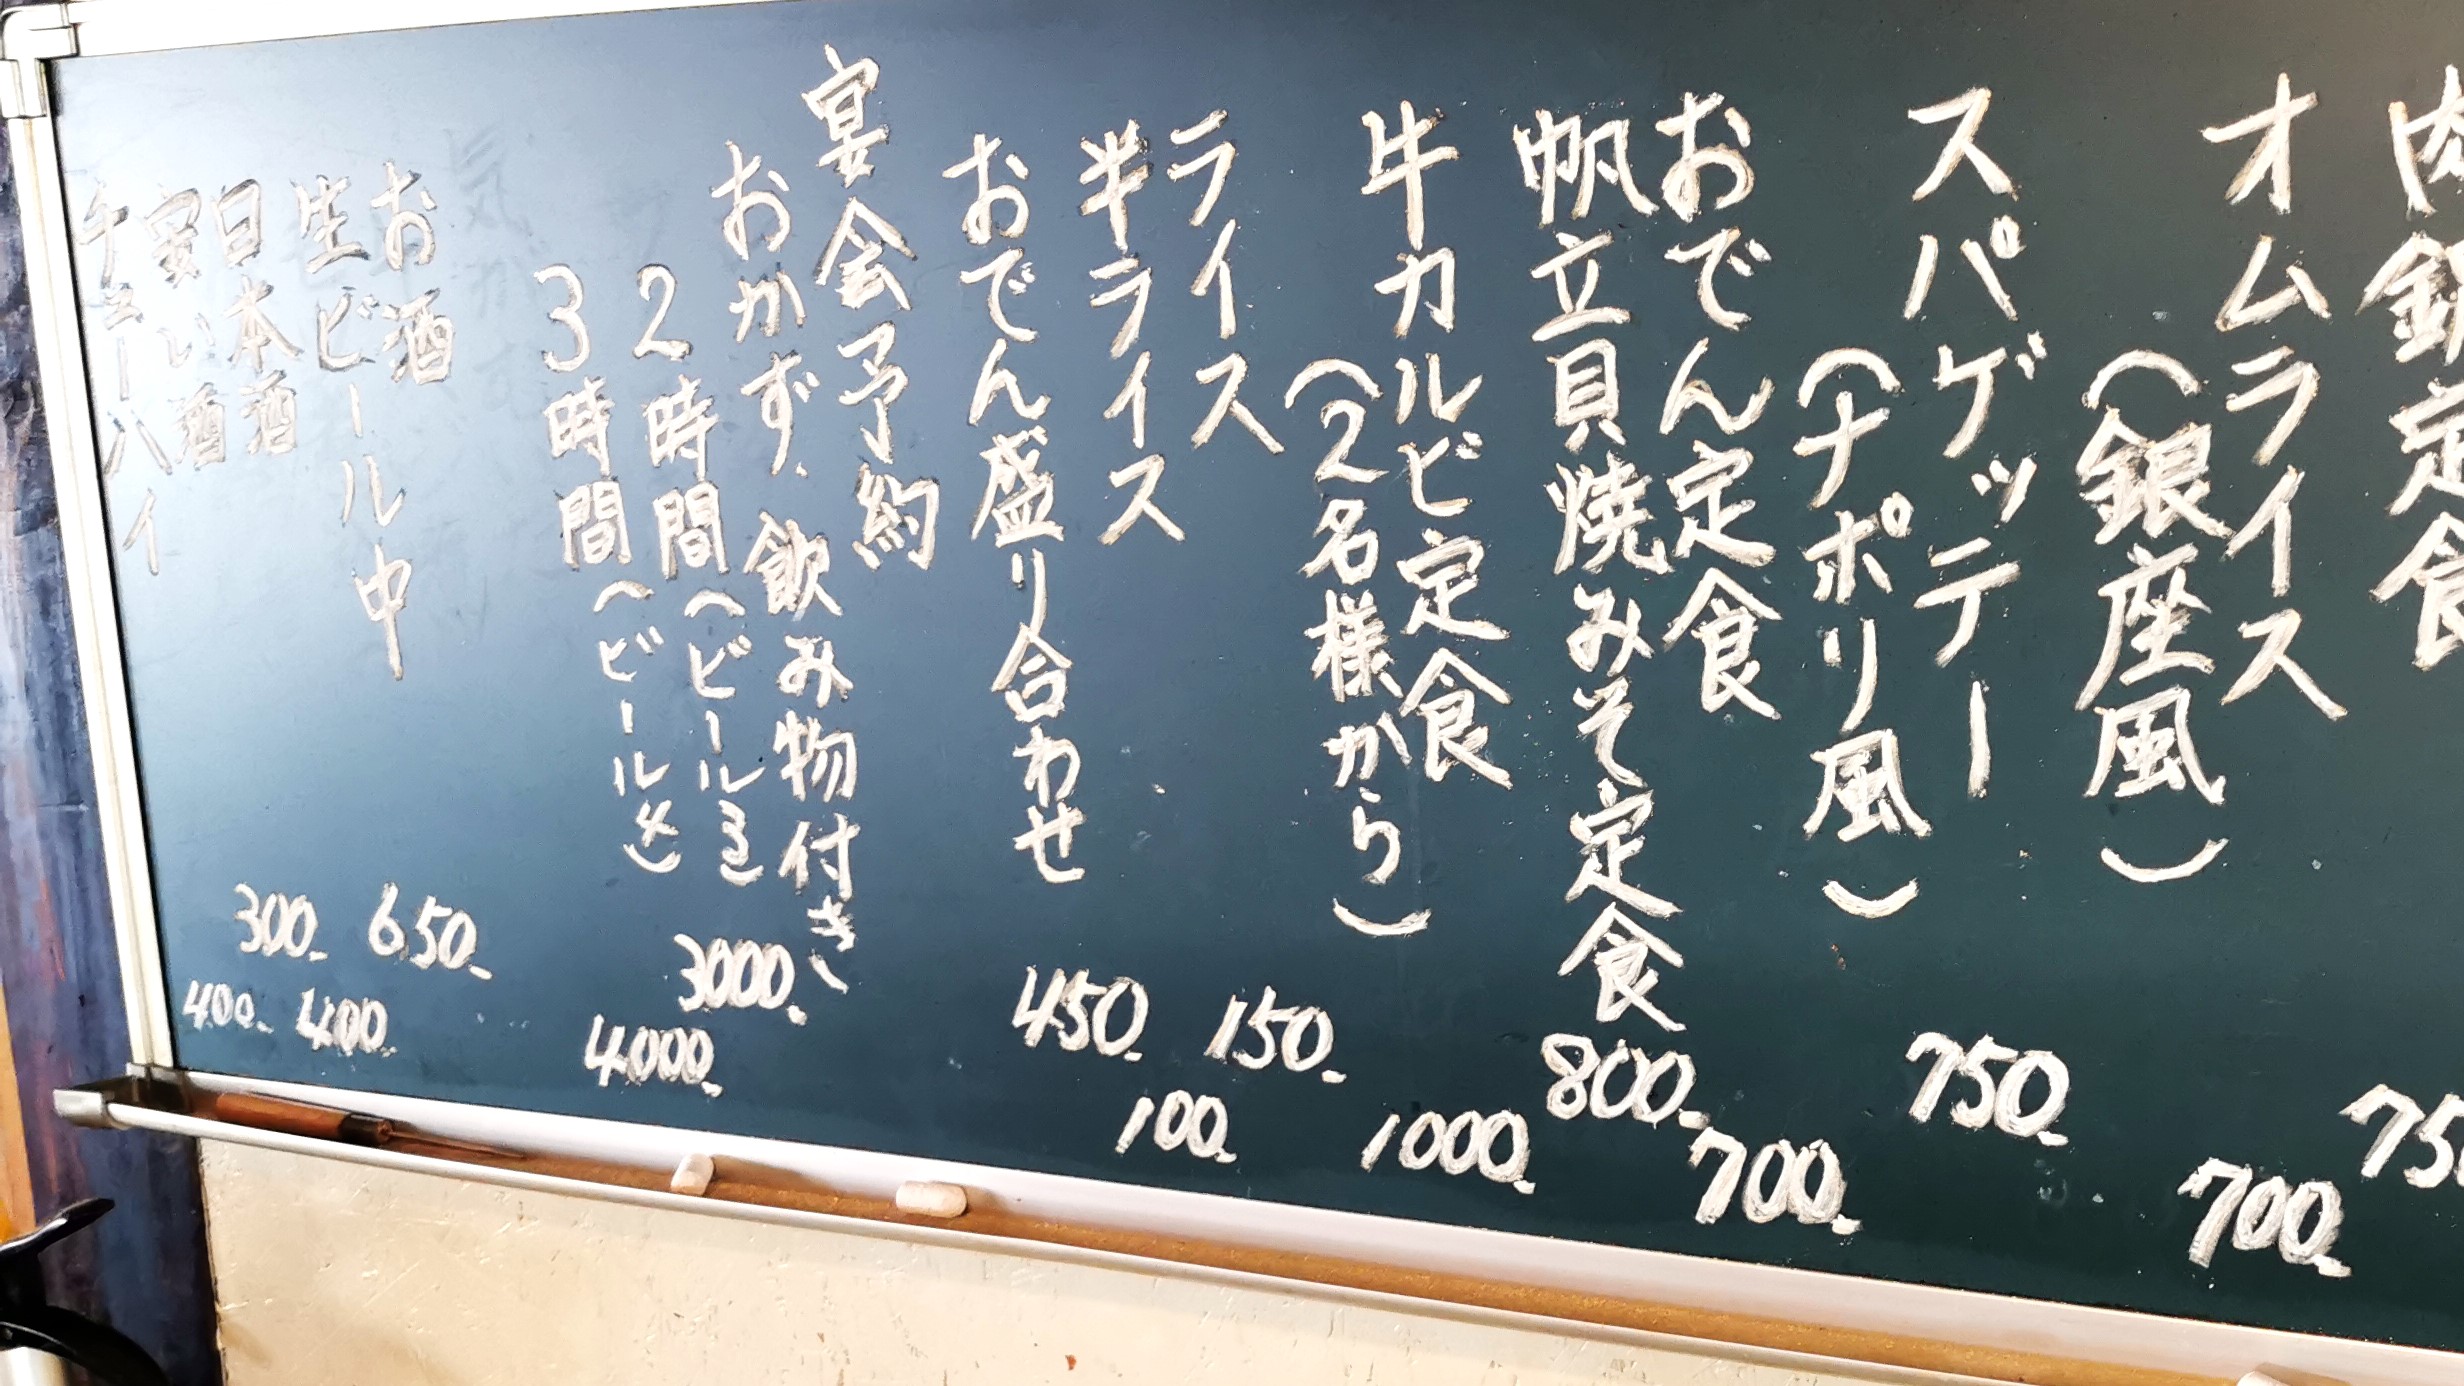 肉
定食
75
オムライス
(銀座風)
700.
スパゲッテー
(ナポリ風)
750.
おでん定食
700.
帆立貝焼みそ定食
800.
牛カルビ定食
(2名様から)
1000.
ライス
150.
半ライス
100.
おでん盛り合わせ
450.
宴会予約
おかず、飲み物付き、
2時間(ビール3)
3000.
3時間(ビール4)
4000.
お酒
生ビール中
650.
日本酒
400.
い酒
300.
チューハイ
400.